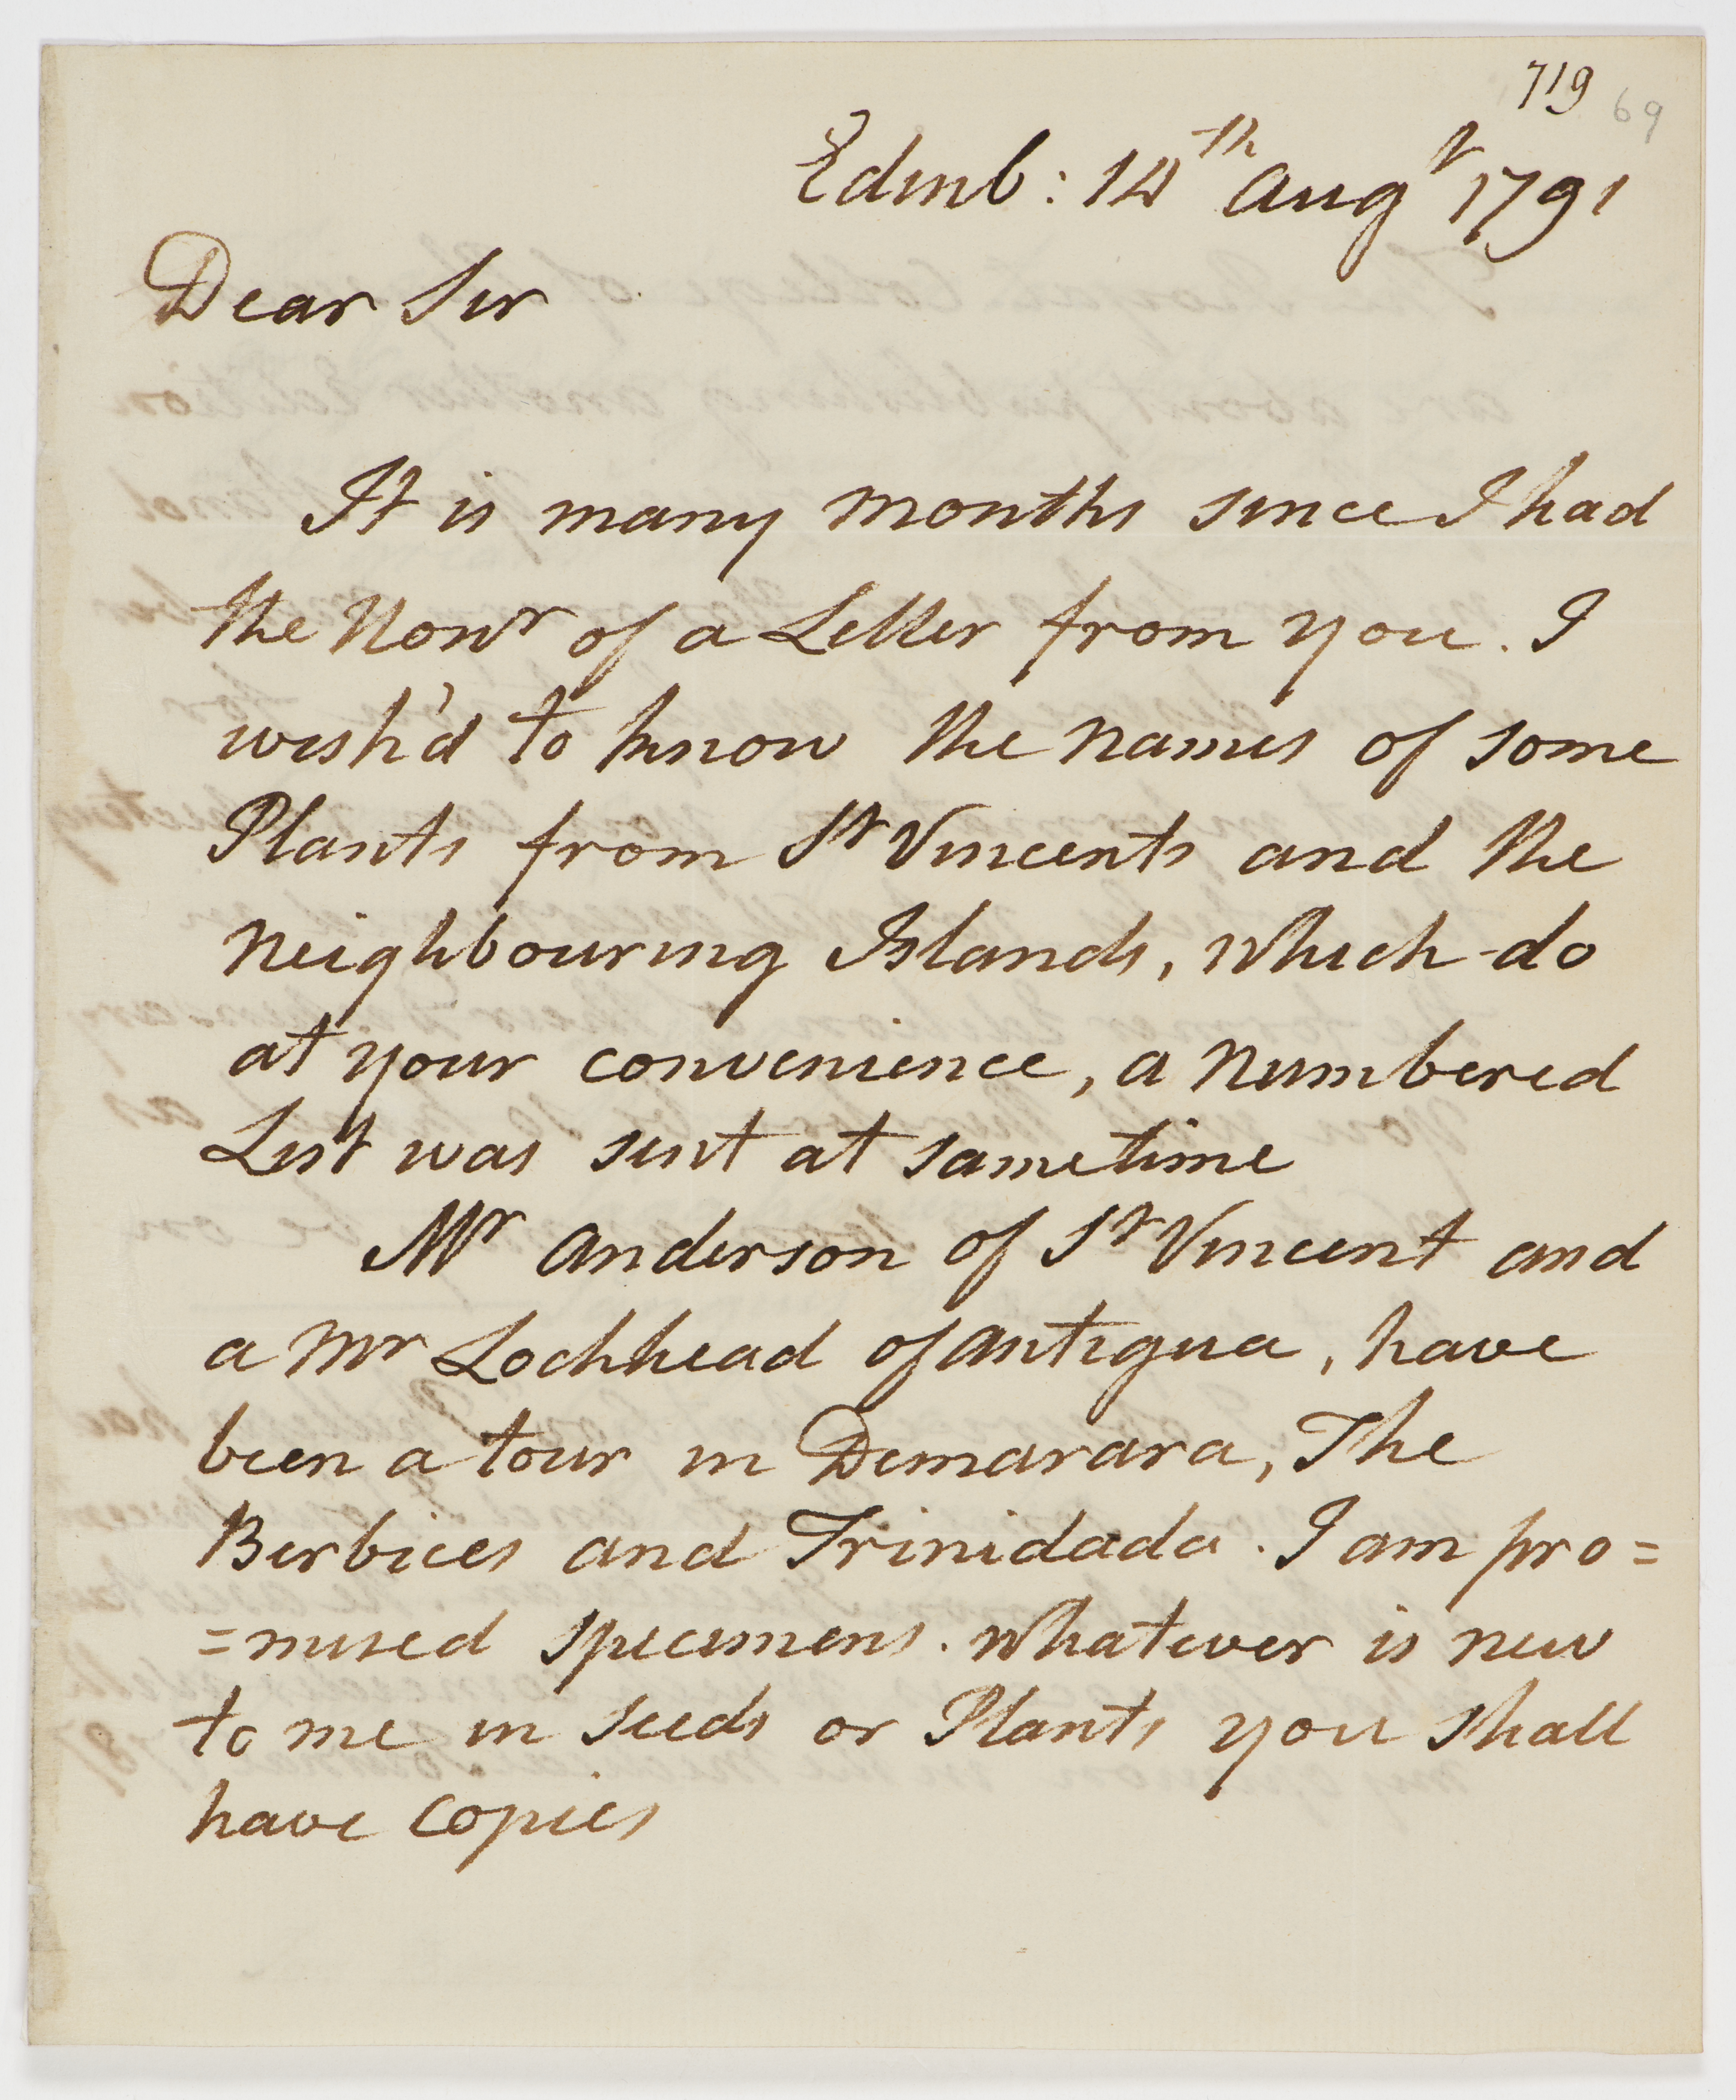 719 69
Edinb: 14th Augt 1791
Dear Sir
It is many months since I had
the Honr of a Letter from you. I
wish'd to know the names of some
Plants from St Vincents and the
neighbouring Islands, which do
at your convenience, a numbered
List was sent at sametime
Mr Anderson of St Vincent and
a Mr Lochhead of Antigua, have
been a tour in Demarara, The
Berbices and Trinidada. I am pro=
=mised specimens. Whatever is new
to me in seeds or Plants you shall
have copies